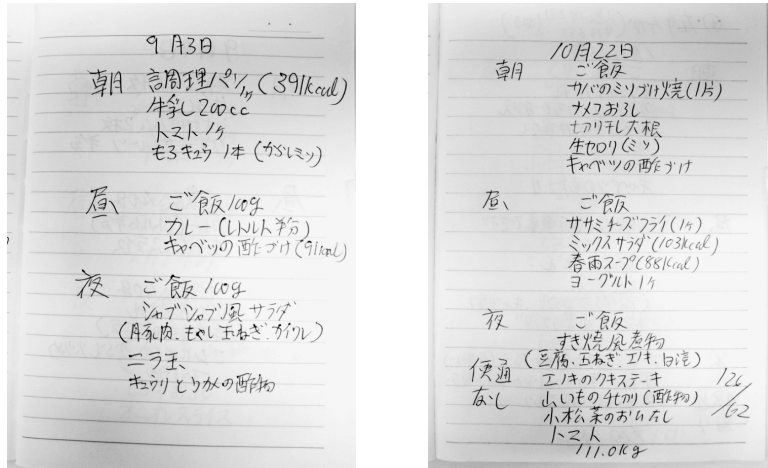 9月3日
朝 調理パン1ヶ(391kcal)
牛乳200cc
トマト1ヶ
もろキュウ1本(からしミソ)
昼 ご飯100g
カレー(レトルト半分)
キャベツの酢づけ(91kcal)
夜 ご飯100g
シャブシャブ風サラダ
(豚肉.もやし玉ねぎ.カイワレ)
ニラ玉
キュウリとワカメの酢物
10月22日
朝 ご飯
サバのミソづけ焼(1片)
ナメコおろし
切り干し大根
生セロリ(ミソ)
キャベツの酢づけ
昼 ご飯
ササミチーズフライ(1ヶ)
ミックスサラダ(103kcal)
春雨スープ(88kcal)
ヨーグルト1ヶ
夜 ご飯
すき焼風煮物
(豆腐.玉ねぎ.エノキ.白滝)
便通 エノキのクキステーキ 126/62
なし 山いもの千切り(酢物)
小松菜のおひたし
トマト
111.0kg